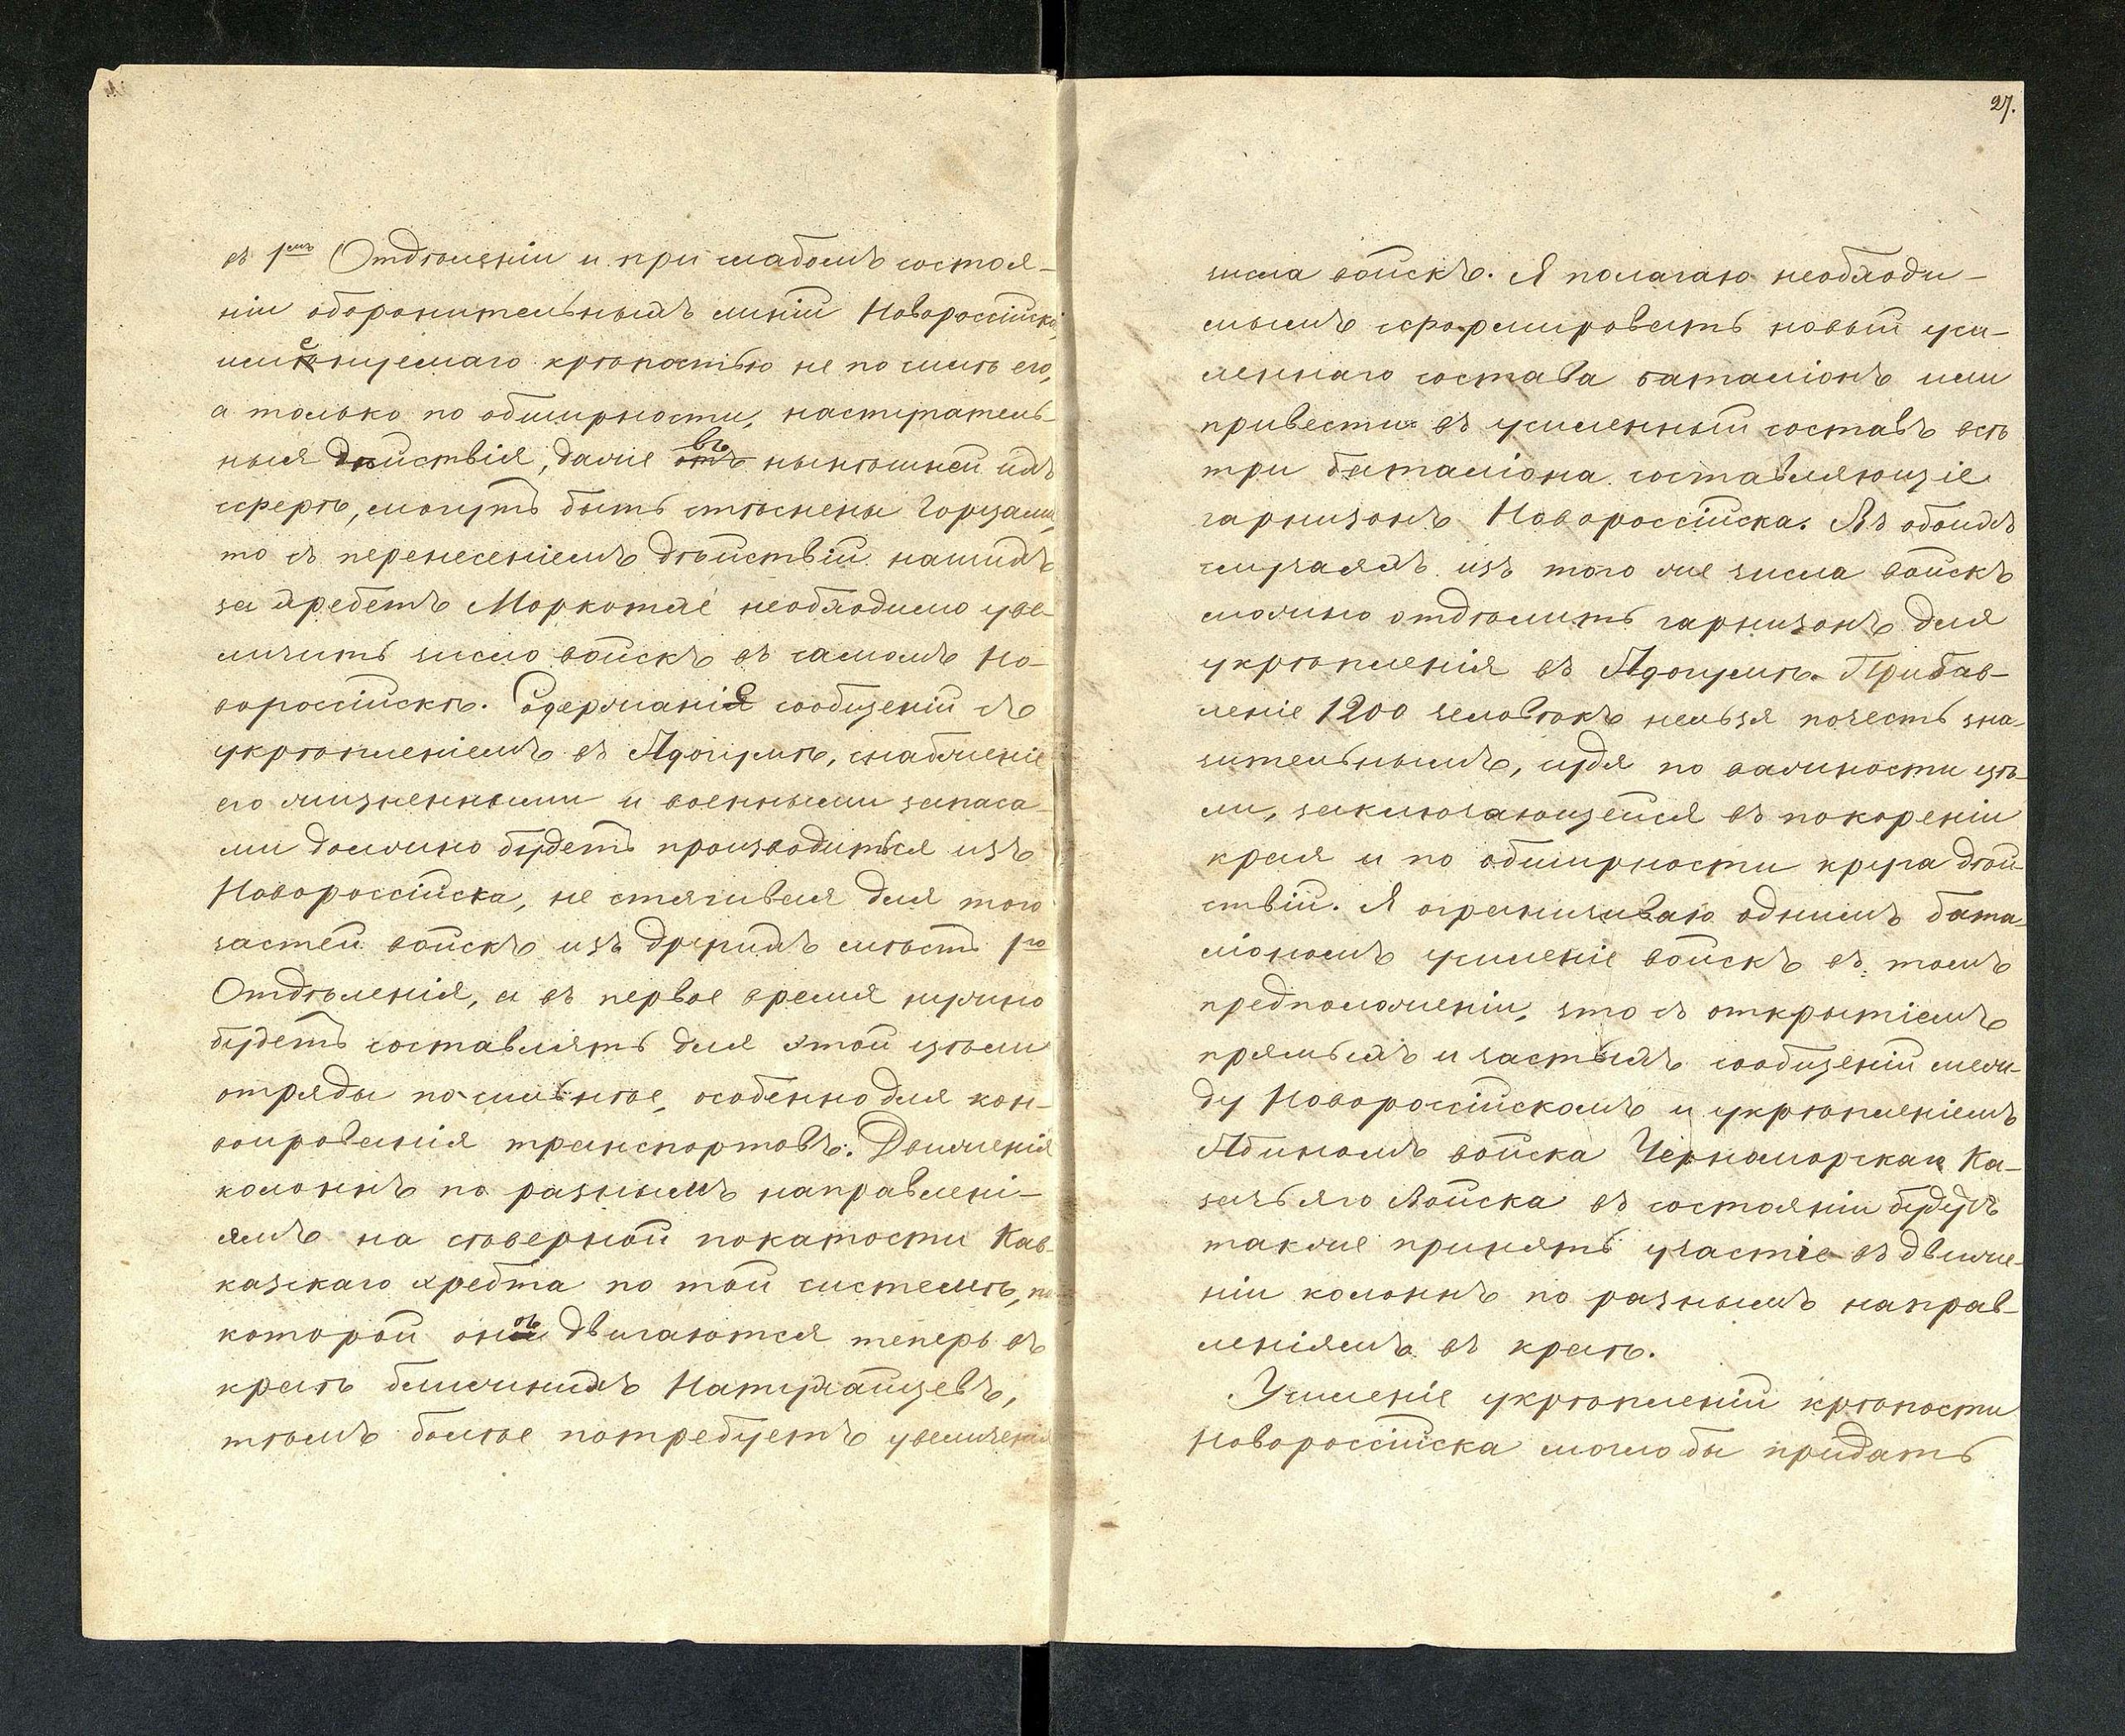 въ 1мъ Отдѣленіи и при слабомъ состоя-
ніи оборонительныхъ линій Новороссійска,
именуемаго крѣпостью не по силѣ его,
а только по обширности, наступатель-
ныя дѣйствія, даже въ нынѣшней ихъ
сферѣ, могутъ быть стѣснены Горцами,
то съ перенесеніемъ дѣйствій нашихъ
за хребетъ Маркотхъ необходимо уве-
личить число войскъ въ самомъ Но-
вороссійскѣ. Содержаніе сообщеній съ
укрѣпленіемъ въ Адагумѣ, снабженіе
его жизненными и военными запаса-
ми должно будетъ производиться изъ
Новороссійска, не стягивая для того
частей войскъ изъ другихъ мѣстъ 1го
Отдѣленія, а въ первое время нужно
будетъ составлять для этой цѣли
отряды посильнѣе, особенно для кон-
воированія транспортовъ. Движенія
колоннъ по разнымъ направлені-
ямъ на сѣверной покатости Кав-
казскаго хребта по той системѣ, по
которой онѣ двигаются теперь въ
краѣ ближнихъ Натухайцевъ,
тѣмъ болѣе потребуетъ увеличенія
27.
числа войскъ. Я полагаю необходи-
мымъ сформировать новый уси-
леннаго состава баталіонъ или
привести въ усиленный составъ всѣ
три баталіона составляющіе
гарнизонъ Новороссійска. Въ обоихъ
случаяхъ изъ того же числа войскъ
можно отдѣлить гарнизонъ для
укрѣпленія въ Адагумѣ. Прибав-
леніе 1200 человѣкъ нельзя почесть зна-
чительнымъ, судя по важности цѣ-
ли, заключающейся въ покореніи
края и по обширности круга дѣй-
ствій. Я ограничиваю однимъ бата-
ліономъ усиленіе войскъ въ томъ
предположеніи, что съ открытіемъ
прямыхъ и частыхъ сообщеній меж-
ду Новороссійскомъ и укрѣпленіемъ
Абиномъ войска Черноморскаго Ка-
зачьяго Войска въ состояніи будутъ
также принять участіе въ движе-
ніи колоннъ по разнымъ направ-
леніямъ въ краѣ.
Усиленіе укрѣпленій крѣпости
Новороссійска могло бы придать